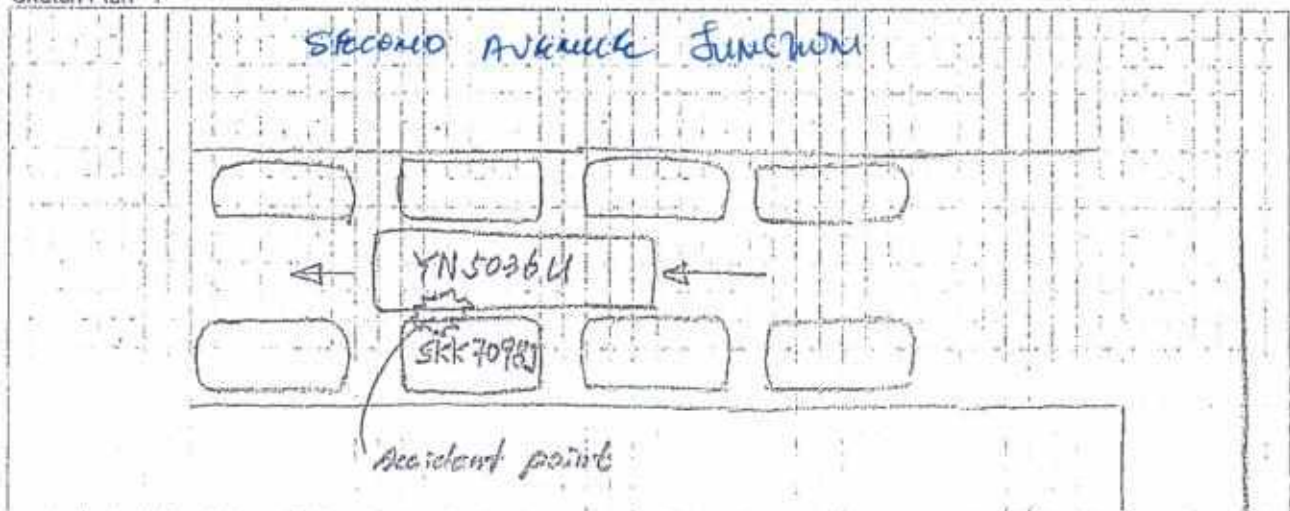 SECOND AVENUE JUNCTION
YN5036U
SKK7098J
Accident point